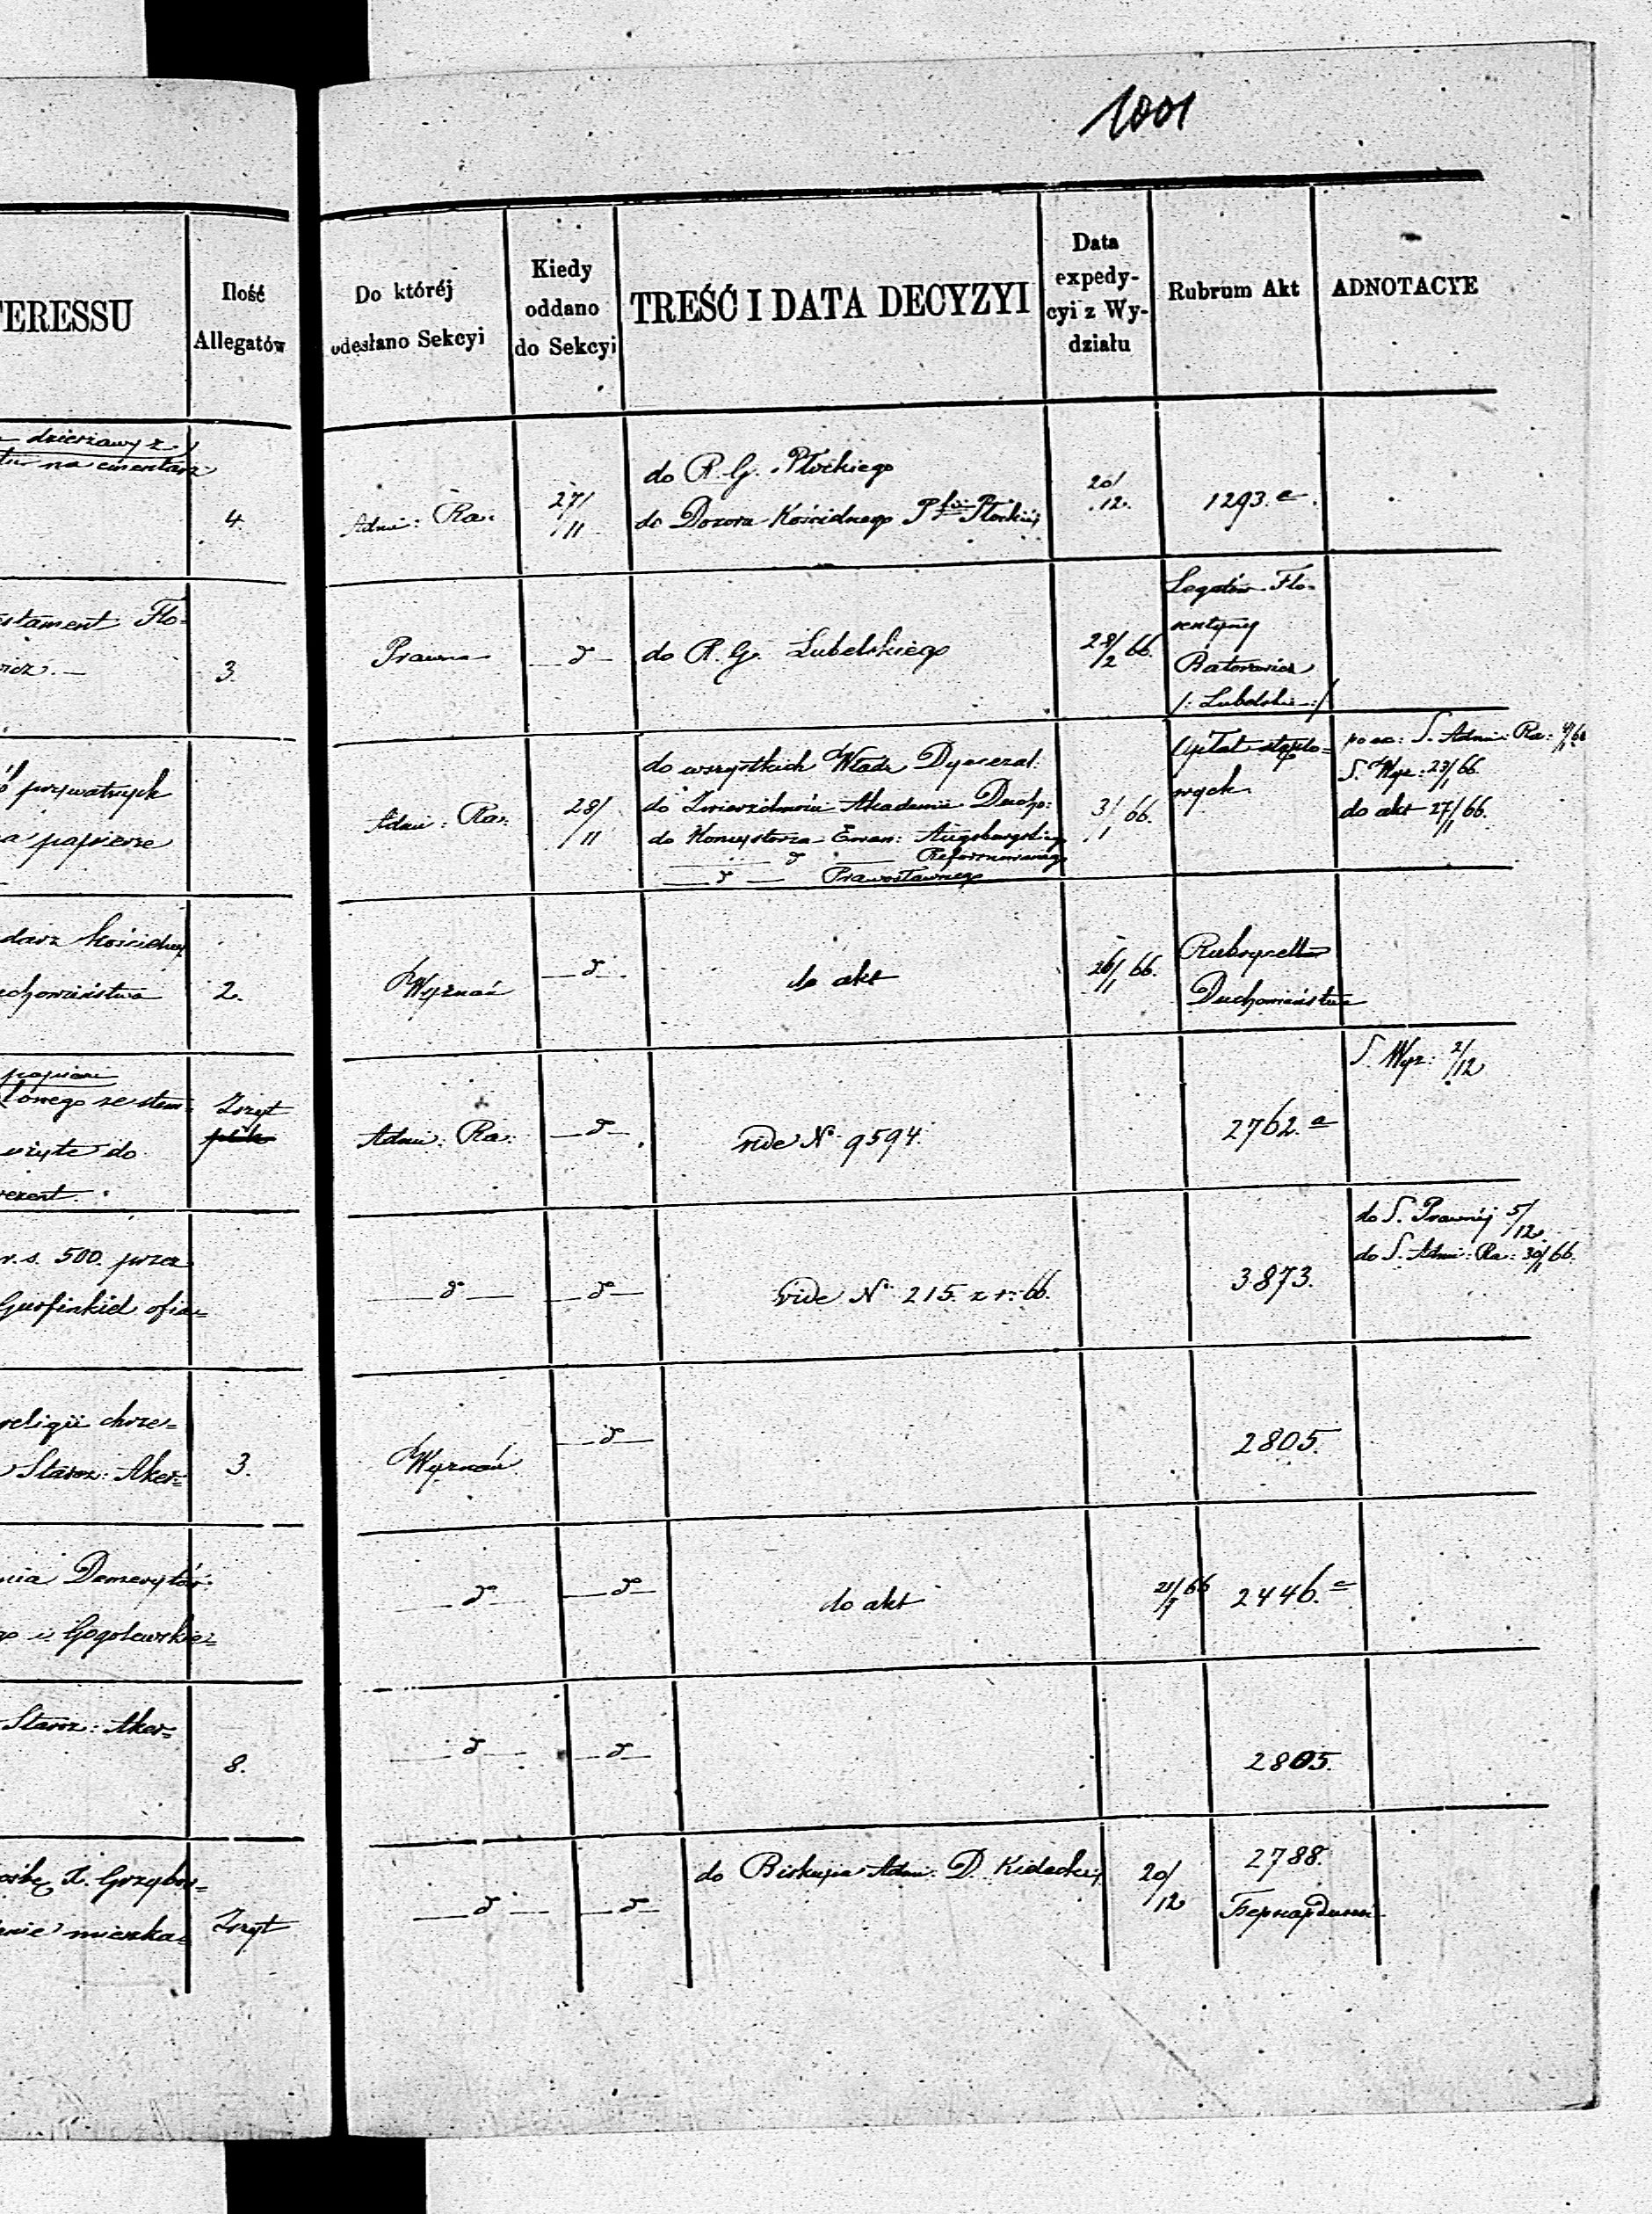 1001
TERESSU
Ilość
Allegatów
Do któréj
odesłano Sekcyi
Kiedy
oddano
do Sekcyi
TREŚĆ I DATA DECYZYI
Data
expedy-
cyi z Wy-
działu
Rubrum Akt
ADNOTACYE
dzierżawy z
na cmentarz
4.
Adm: Ra:
27/11
do R. G. Płockiego
do Dozoru Kościelnego
20/12.
1293. a.
stament Flo-
icz. —
3.
Prawna
— d —
do R. G. Lubelskiego
28/2 66.
Legatów Flo-
rentyny
Ratorowicz
/: Lubelskie :/
prywatnych
a papierze
Adm: Ra:
28/11
do wszystkich Władz Dyecezal.
do Zwierzchności Akademii Ducho:
do Konsystorza Ewan: Augsburgskiego
— d — Reformowanego
— d — Prawosławnego
3/1 66.
wych
S. Adm: Ra: 4/1 66
S. Wyz: 23/1 66.
do akt 27/1 66.
darz kościelny
uchowieństwa
2.
Wyznań
— d —
do akt
26/1 66.
Rubrycella
Duchowieństwa
papieru
lonego ze stem-
użyte do
Zszyt
Adm: Ra:
— d —
vide № 9594.
2762. a
S. Wyz: 2/12
r. s. 500. przez
Gurfinkiel ofia-
— d —
— d —
vide № 215. z r: 66.
3873.
do S. Prawnéj 5/12.
do S. Adm: Ra: 30/1 66.
religii chrze-
Staroz: Aker-
3.
Wyznań
— d —
2805.
nia Demerytów
go i Gogolewskie-
— d —
— d —
do akt
21/1 66
2446. c
Staroz: Aker-
8.
— d —
— d —
2805.
ośbę X. Grzybow-
enie mieszka-
Zszyt
— d —
— d —
do Biskupa Adm: D. Kieleckiéj
20/12
2788.
Бернардини